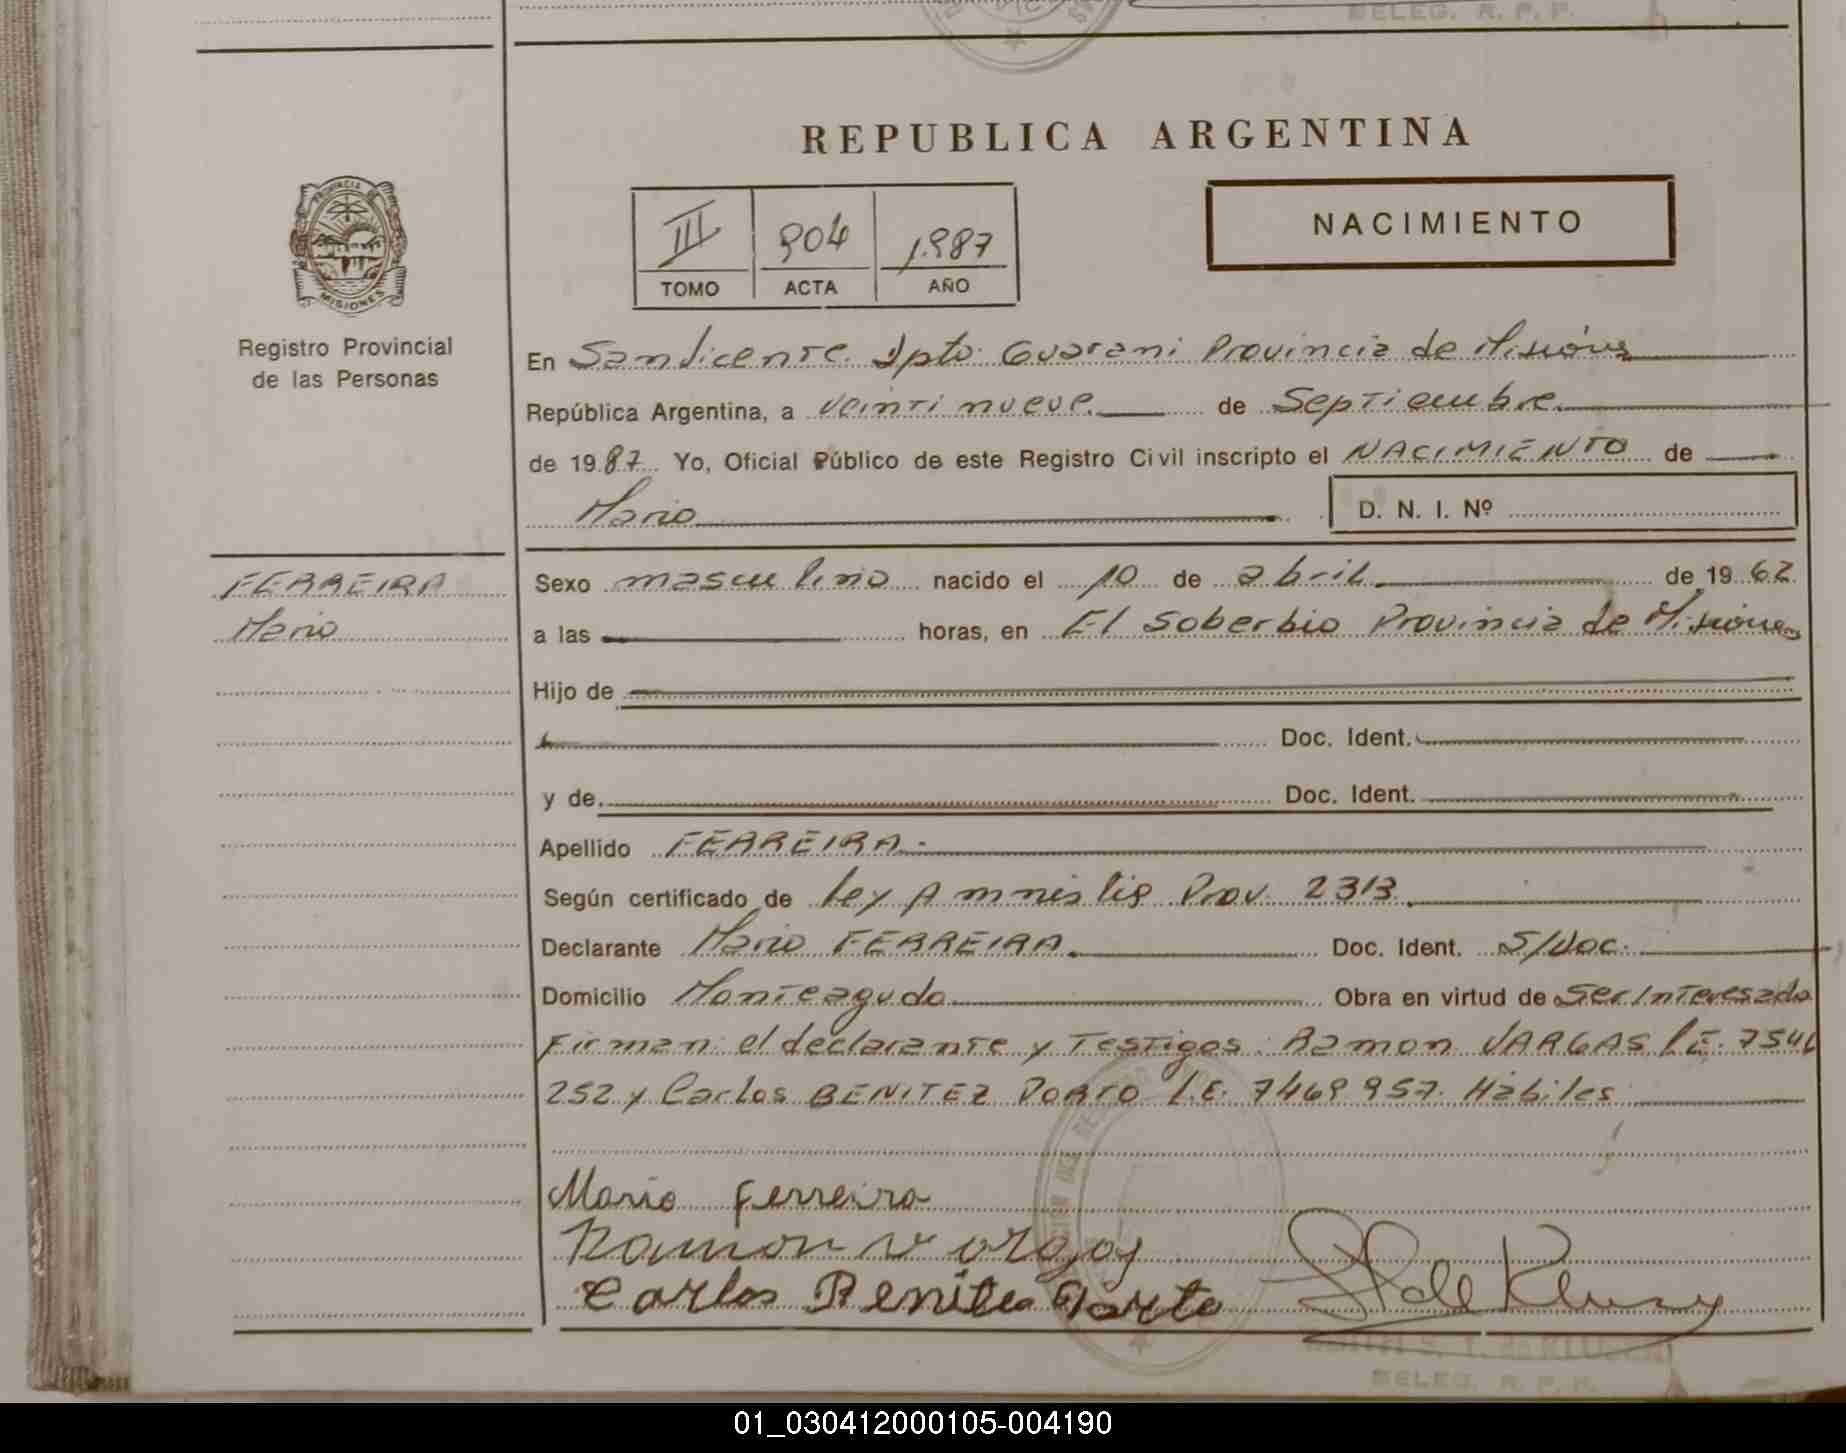 DELEG. R. P. P.
REPUBLICA ARGENTINA
PROVINCIA DE
MISIONES
III 904 1.987
TOMO ACTA AÑO
NACIMIENTO
Registro Provincial
de las Personas
En San Vicente. Dpto. Guarani Provincia de Misiones
República Argentina, a veinti nueve de Septiembre
de 1987 Yo, Oficial Público de este Registro Civil inscripto el NACIMIENTO de
Mario D. N. I. Nº
FERREIRA
Mario
Sexo masculino nacido el 10 de abril de 1962
a las horas, en El Soberbio Provincia de Misiones
Hijo de
Doc. Ident.
y de Doc. Ident.
Apellido FERREIRA.
Según certificado de ley Amnistia Prov. 2313
Declarante Mario FERREIRA Doc. Ident. S/Doc.
Domicilio Monteagudo Obra en virtud de Ser Interesado
Firman: el declarante y Testigos: Ramon VARGAS L.E. 7546
252 y Carlos BENITEZ PORTO L.E. 7469957. Hábiles
Mario Ferreira
Ramon Vargas
Carlos Benites Porto
DELEG. R. P. P.
01_030412000105-004190